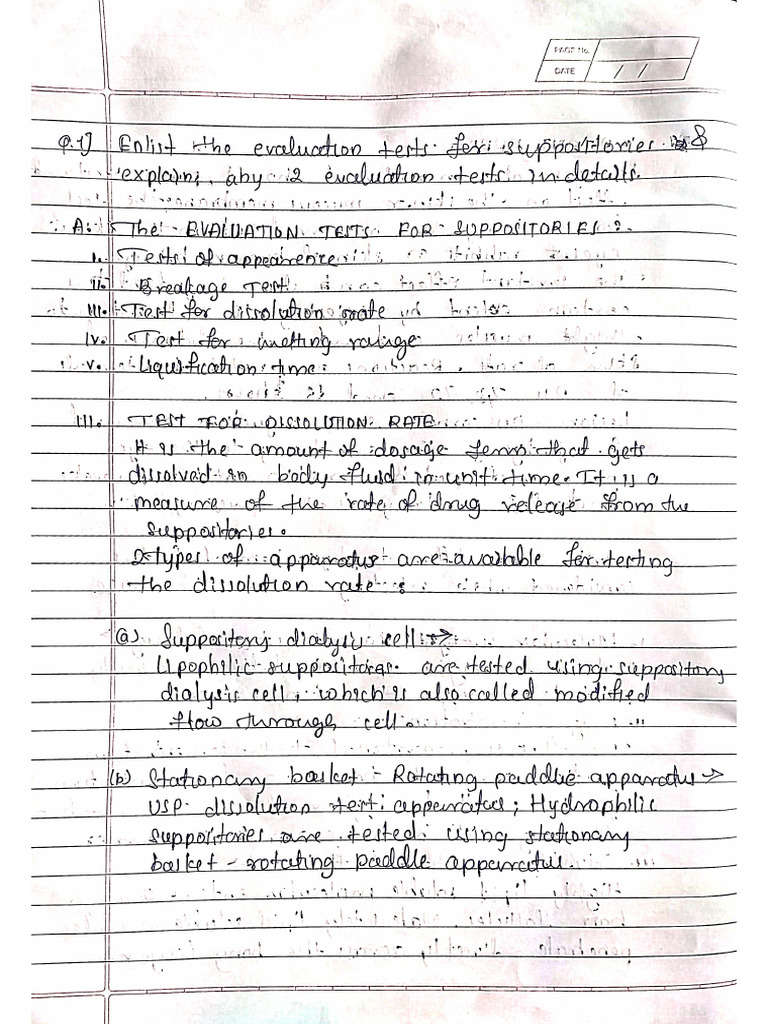 PAGE No.
DATE / /
Q.1] Enlist the evaluation tests for suppositories &
explain any 2 evaluation tests in details.
A: The EVALUATION TESTS FOR SUPPOSITORIES :
i. Tests of appearence
ii. Breakage Test
iii. Test for dissolution rate
iv. Test for melting range
v. Liquification time
III. TEST FOR DISSOLUTION RATE
It is the amount of dosage form that gets
dissolved in body fluid in unit time. It is a
measure of the rate of drug release from the
suppositories.
2 types of apparatus are available for testing
the dissolution rate :
(a) Suppository dialysis cell :→
Lipophilic suppositories are tested using suppository
dialysis cell, which is also called modified
flow through cell.
(b) Stationary basket - Rotating paddle apparatus →
USP dissolution test apparatus ; Hydrophilic
suppositories are tested using stationary
basket - rotating paddle apparatus.